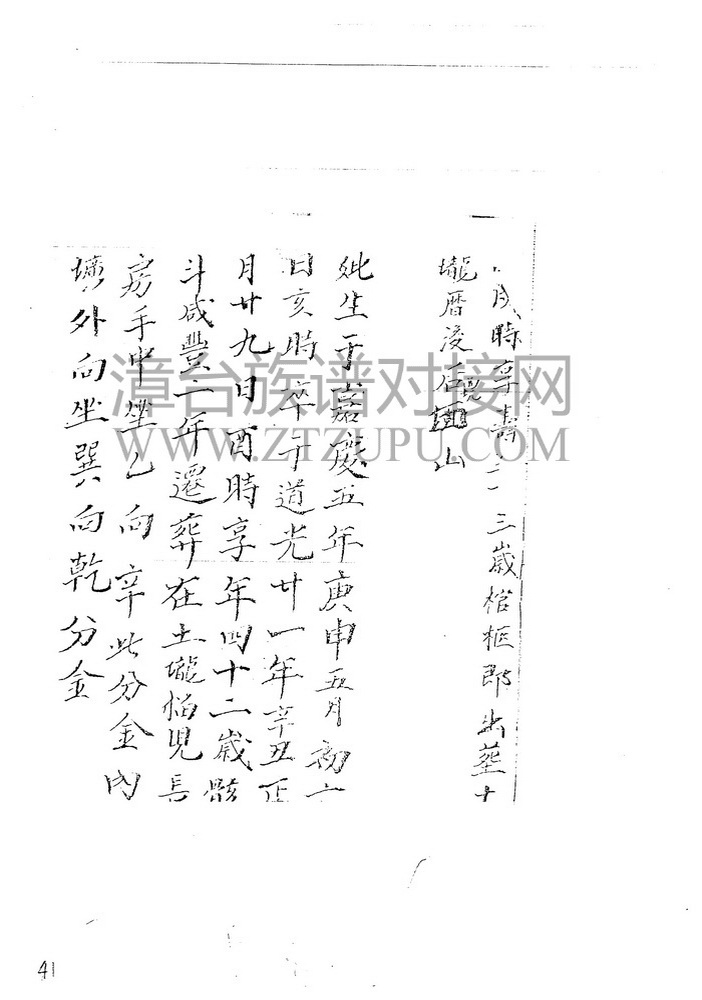 戌時享壽三十三歲棺柩郎出塟土
壠曆後店山
妣生于嘉慶五年庚申五月初六
日亥時卒于道光廿一年辛丑正
月廿九日酉時享年四十二歲骸
斗咸豐二年遷葬在土壠倘見長
房手中坐乙向辛此分金內
壙外向坐巽向乾分金
漳台族谱对接网
WWW.ZTZUPU.COM
41